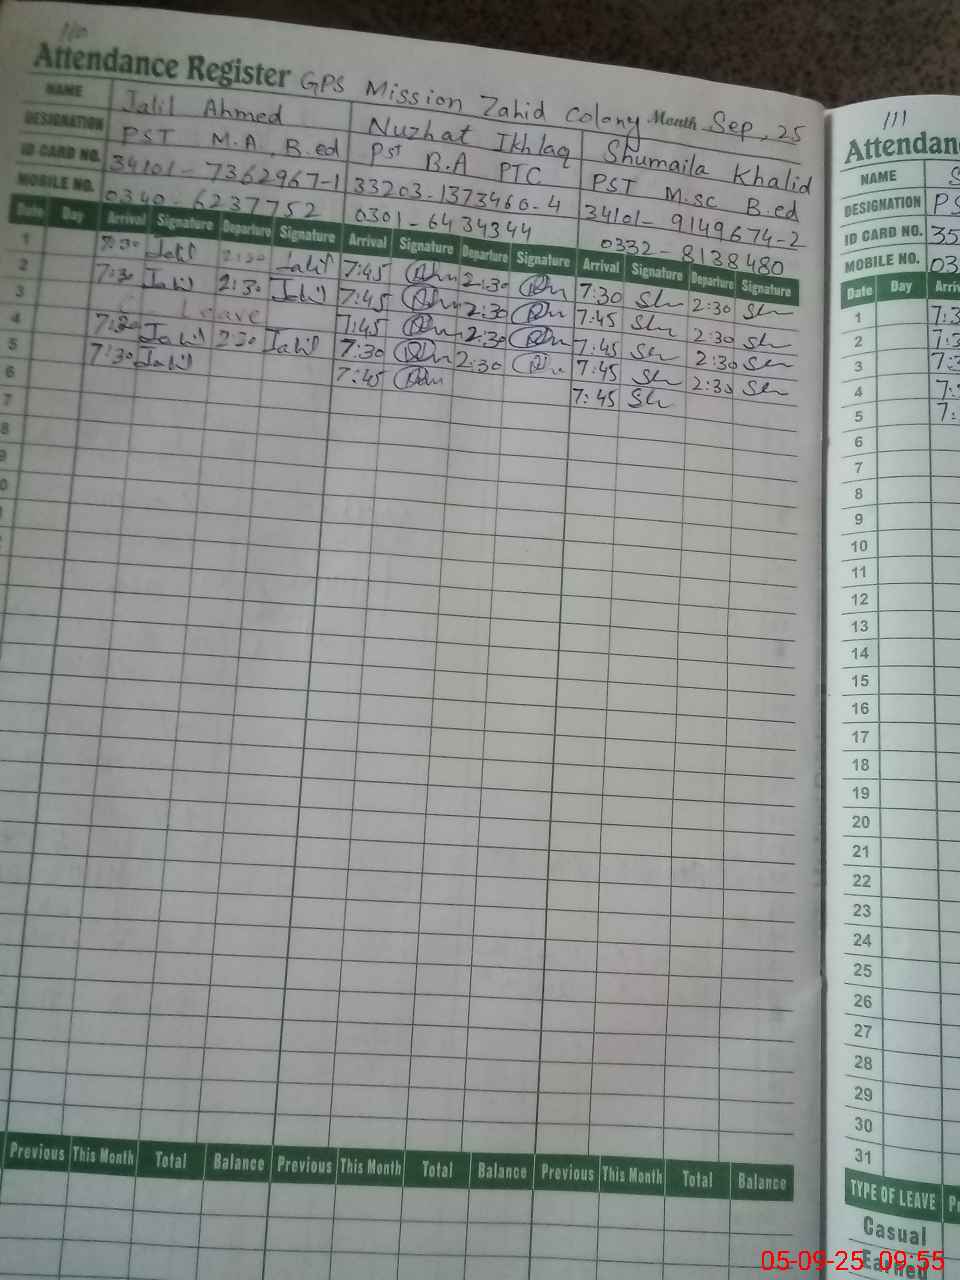 110
Attendance Register GPS Mission Zahid Colony Month Sep, 25
NAME Jalil Ahmed Nuzhat Ikhlaq Shumaila Khalid
DESIGNATION PST M.A B.ed Pst B.A PTC PST M.sc B.ed
ID CARD NO. 34101-7362967-1 33203-1373460-4 34101-9149674-2
MOBILE NO. 0340-6237752 0301-6434344 0332-8138480
Date Day Arrival Signature Departure Signature Arrival Signature Departure Signature Arrival Signature Departure Signature
1 7:30 Jalil 2:30 Jalil 7:45 2:30 7:30 Sh 2:30 Sh
2 7:30 Jalil 2:30 Jalil 7:45 2:30 7:45 Sh 2:30 Sh
3 Leave 7:45 2:30 7:45 Sh 2:30 Sh
4 7:30 Jalil 2:30 Jalil 7:30 2:30 7:45 Sh 2:30 Sh
5 7:30 Jalil 7:45 7:45 Sh
6
7
8
9
0
Previous This Month Total Balance Previous This Month Total Balance Previous This Month Total Balance
111
Attendan
NAME S
DESIGNATION PS
ID CARD NO. 35
MOBILE NO. 03
Date Day Arriv
1 7:3
2 7:3
3 7:3
4 7:
5 7:
6
7
8
9
10
11
12
13
14
15
16
17
18
19
20
21
22
23
24
25
26
27
28
29
30
31
TYPE OF LEAVE Pr
Casual
Earned
05-09-25 09:55